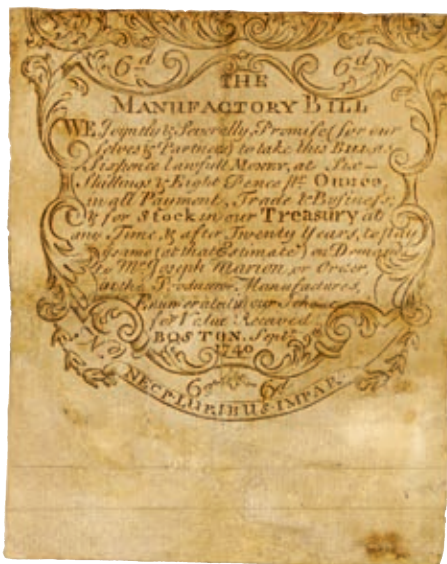 6d 6d
THE
MANUFACTORY BILL
WE Joyntly & Severally, Promise (for our
selves & Partners) to take this BILL as
Sixpence Lawfull Money, at Six-
Shillings & Eight Pence Pr. Ounce,
in all Payments, Trade & Busyness,
& for Stock in our Treasury at
any Time, & after Twenty Years, to pay
ye same (at that Estimate) on Demand
to Mr. Joseph Marion, or Order,
in the Produce or Manufactures,
Enumerated in our Scheme
for Value Received
BOSTON, Sept.
1740
No
6 6d
NEC PLURIBUS IMPAR